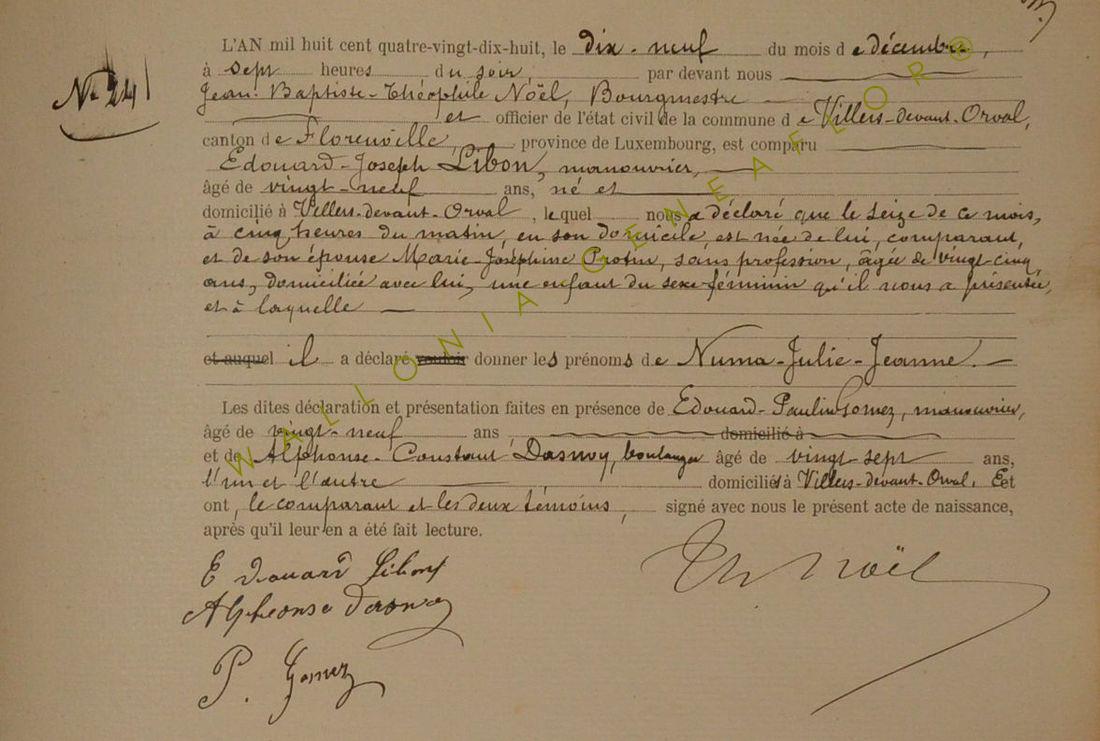 L'AN mil huit cent quatre-vingt-dix-huit, le dix-neuf du mois de décembre,
à sept heures du soir, par devant nous
N° 24
Jean-Baptiste-Théophile Noël, Bourgmestre
et officier de l'état civil de la commune de Villers-devant-Orval,
canton de Florenville, province de Luxembourg, est comparu
Edouard-Joseph Libon, manouvrier,
âgé de vingt-neuf ans, né et
domicilié à Villers-devant-Orval, lequel nous a déclaré que le seize de ce mois,
à cinq heures du matin, en son domicile, est née de lui, comparant,
et de son épouse Marie-Joséphine Protin, sans profession, âgée de vingt-cinq
ans, domiciliée avec lui, une enfant du sexe féminin qu'il nous a présentée,
et à laquelle
et auquel il a déclaré vouloir donner les prénoms de Numa-Julie-Jeanne.
Les dites déclaration et présentation faites en présence de Edouard-Paulin Gomez, manouvrier,
âgé de vingt-neuf ans, domicilié à
et de Alphonse-Constant Dasnoy, boulanger âgé de vingt sept ans,
l'un et l'autre domiciliés à Villers-devant-Orval. Eet
ont, le comparant et les deux témoins, signé avec nous le présent acte de naissance,
après qu'il leur en a été fait lecture.
Edouard Libon
Th Noël
Alphonse Dasnoy
P. Gomez
WALLONIA GENEAFLOR®